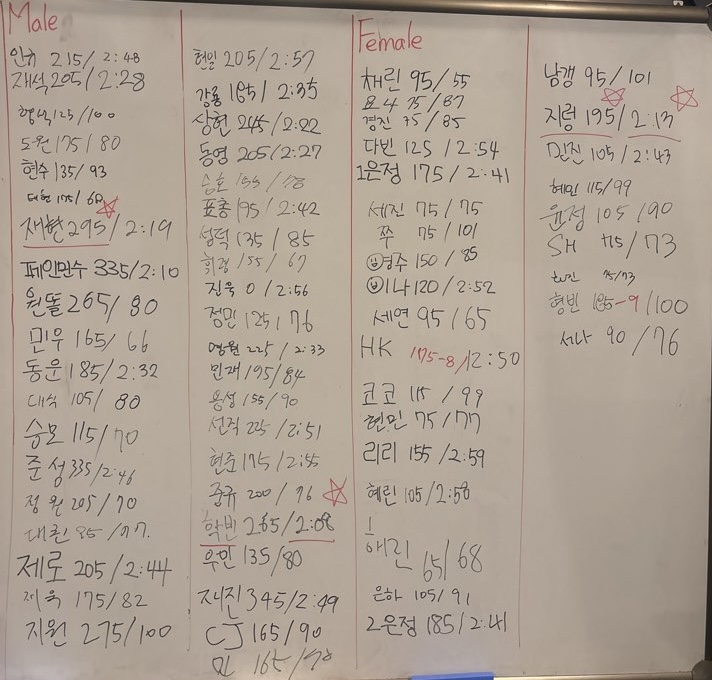 Male
인휴 215/2:48
재석 205/2:28
125/100
도원 175/80
현수 135/93
대현 155/68
재환 295/2:19
페인민수 335/2:10
원똘 265/80
민우 165/66
동운 185/2:32
대식 105/80
승모 115/70
준성 335/2:46
정원 205/70
대훤 85/77.
제로 205/2:44
재욱 175/82
지원 275/100
현일 205/2:57
강룡 165/2:35
상헌 245/2:22
동영 205/2:27
승호 155/78
표총 195/2:42
성덕 135/85
휘령 155/67
진욱 0/2:56
정민 125/76
명원 225/2:33
민재 195/84
용성 155/90
선직 225/2:51
현준 175/2:55
중규 200/76
학빈 265/2:08
우민 135/80
재진 345/2:49
CJ 165/90
민 165/70
Female
채린 95/55
요4 75/87
경진 75/85
다빈 125/2:54
1은정 175/2:41
세진 75/75
쭈 75/101
영주 150/85
이나 120/2:52
세연 95/65
HK 175-8/2:50
코코 115/99
현민 75/77
리리 155/2:59
혜린 105/2:58
해린 65/68
은하 105/91
2은정 185/2:41
낭갱 95/101
지령 195/2:13
민진 105/2:43
혜민 115/99
윤정 105/90
SH 75/73
75/73
형빈 185-9/100
서나 90/76